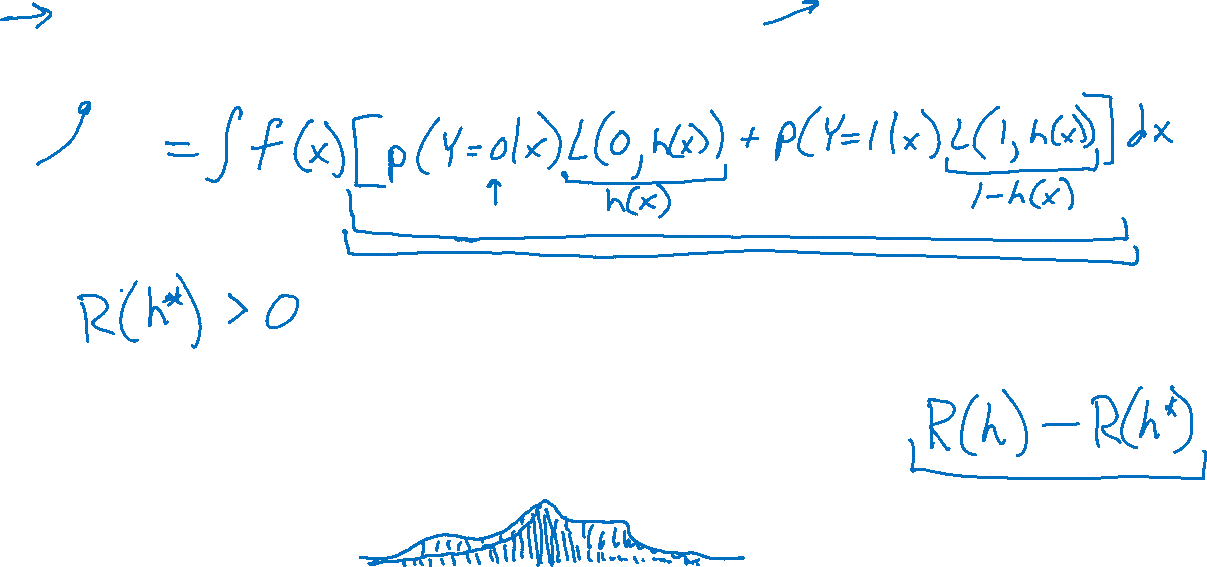 = ∫ f(x) [ p(Y=0|x) L(0, h(x)) + p(Y=1|x) L(1, h(x)) ] dx
↑ h(x) 1-h(x)
R(h*) > 0
R(h) - R(h*)